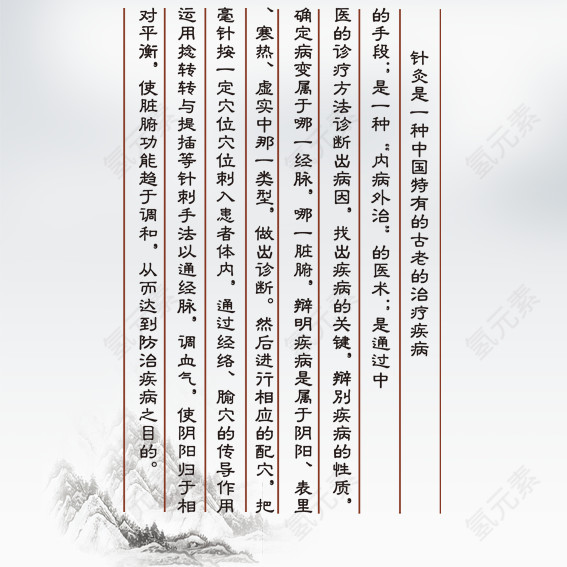 针灸是一种中国特有的古老的治疗疾病
的手段；是一种“内病外治”的医术；是通过中
医的诊疗方法诊断出病因，找出疾病的关键，辩别疾病的性质，
确定病变属于哪一经脉，哪一脏腑，辩明疾病是属于阴阳、表里
、寒热、虚实中那一类型，做出诊断。然后进行相应的配穴，把
毫针按一定穴位穴位刺入患者体内，通过经络、腧穴的传导作用
运用捻转转与提插等针刺手法以通经脉，调血气，使阴阳归于相
对平衡，使脏腑功能趋于调和，从而达到防治疾病之目的。
氢元素
氢元素
氢元素
氢元素
氢元素
氢元素
氢元素
氢元素
氢元素